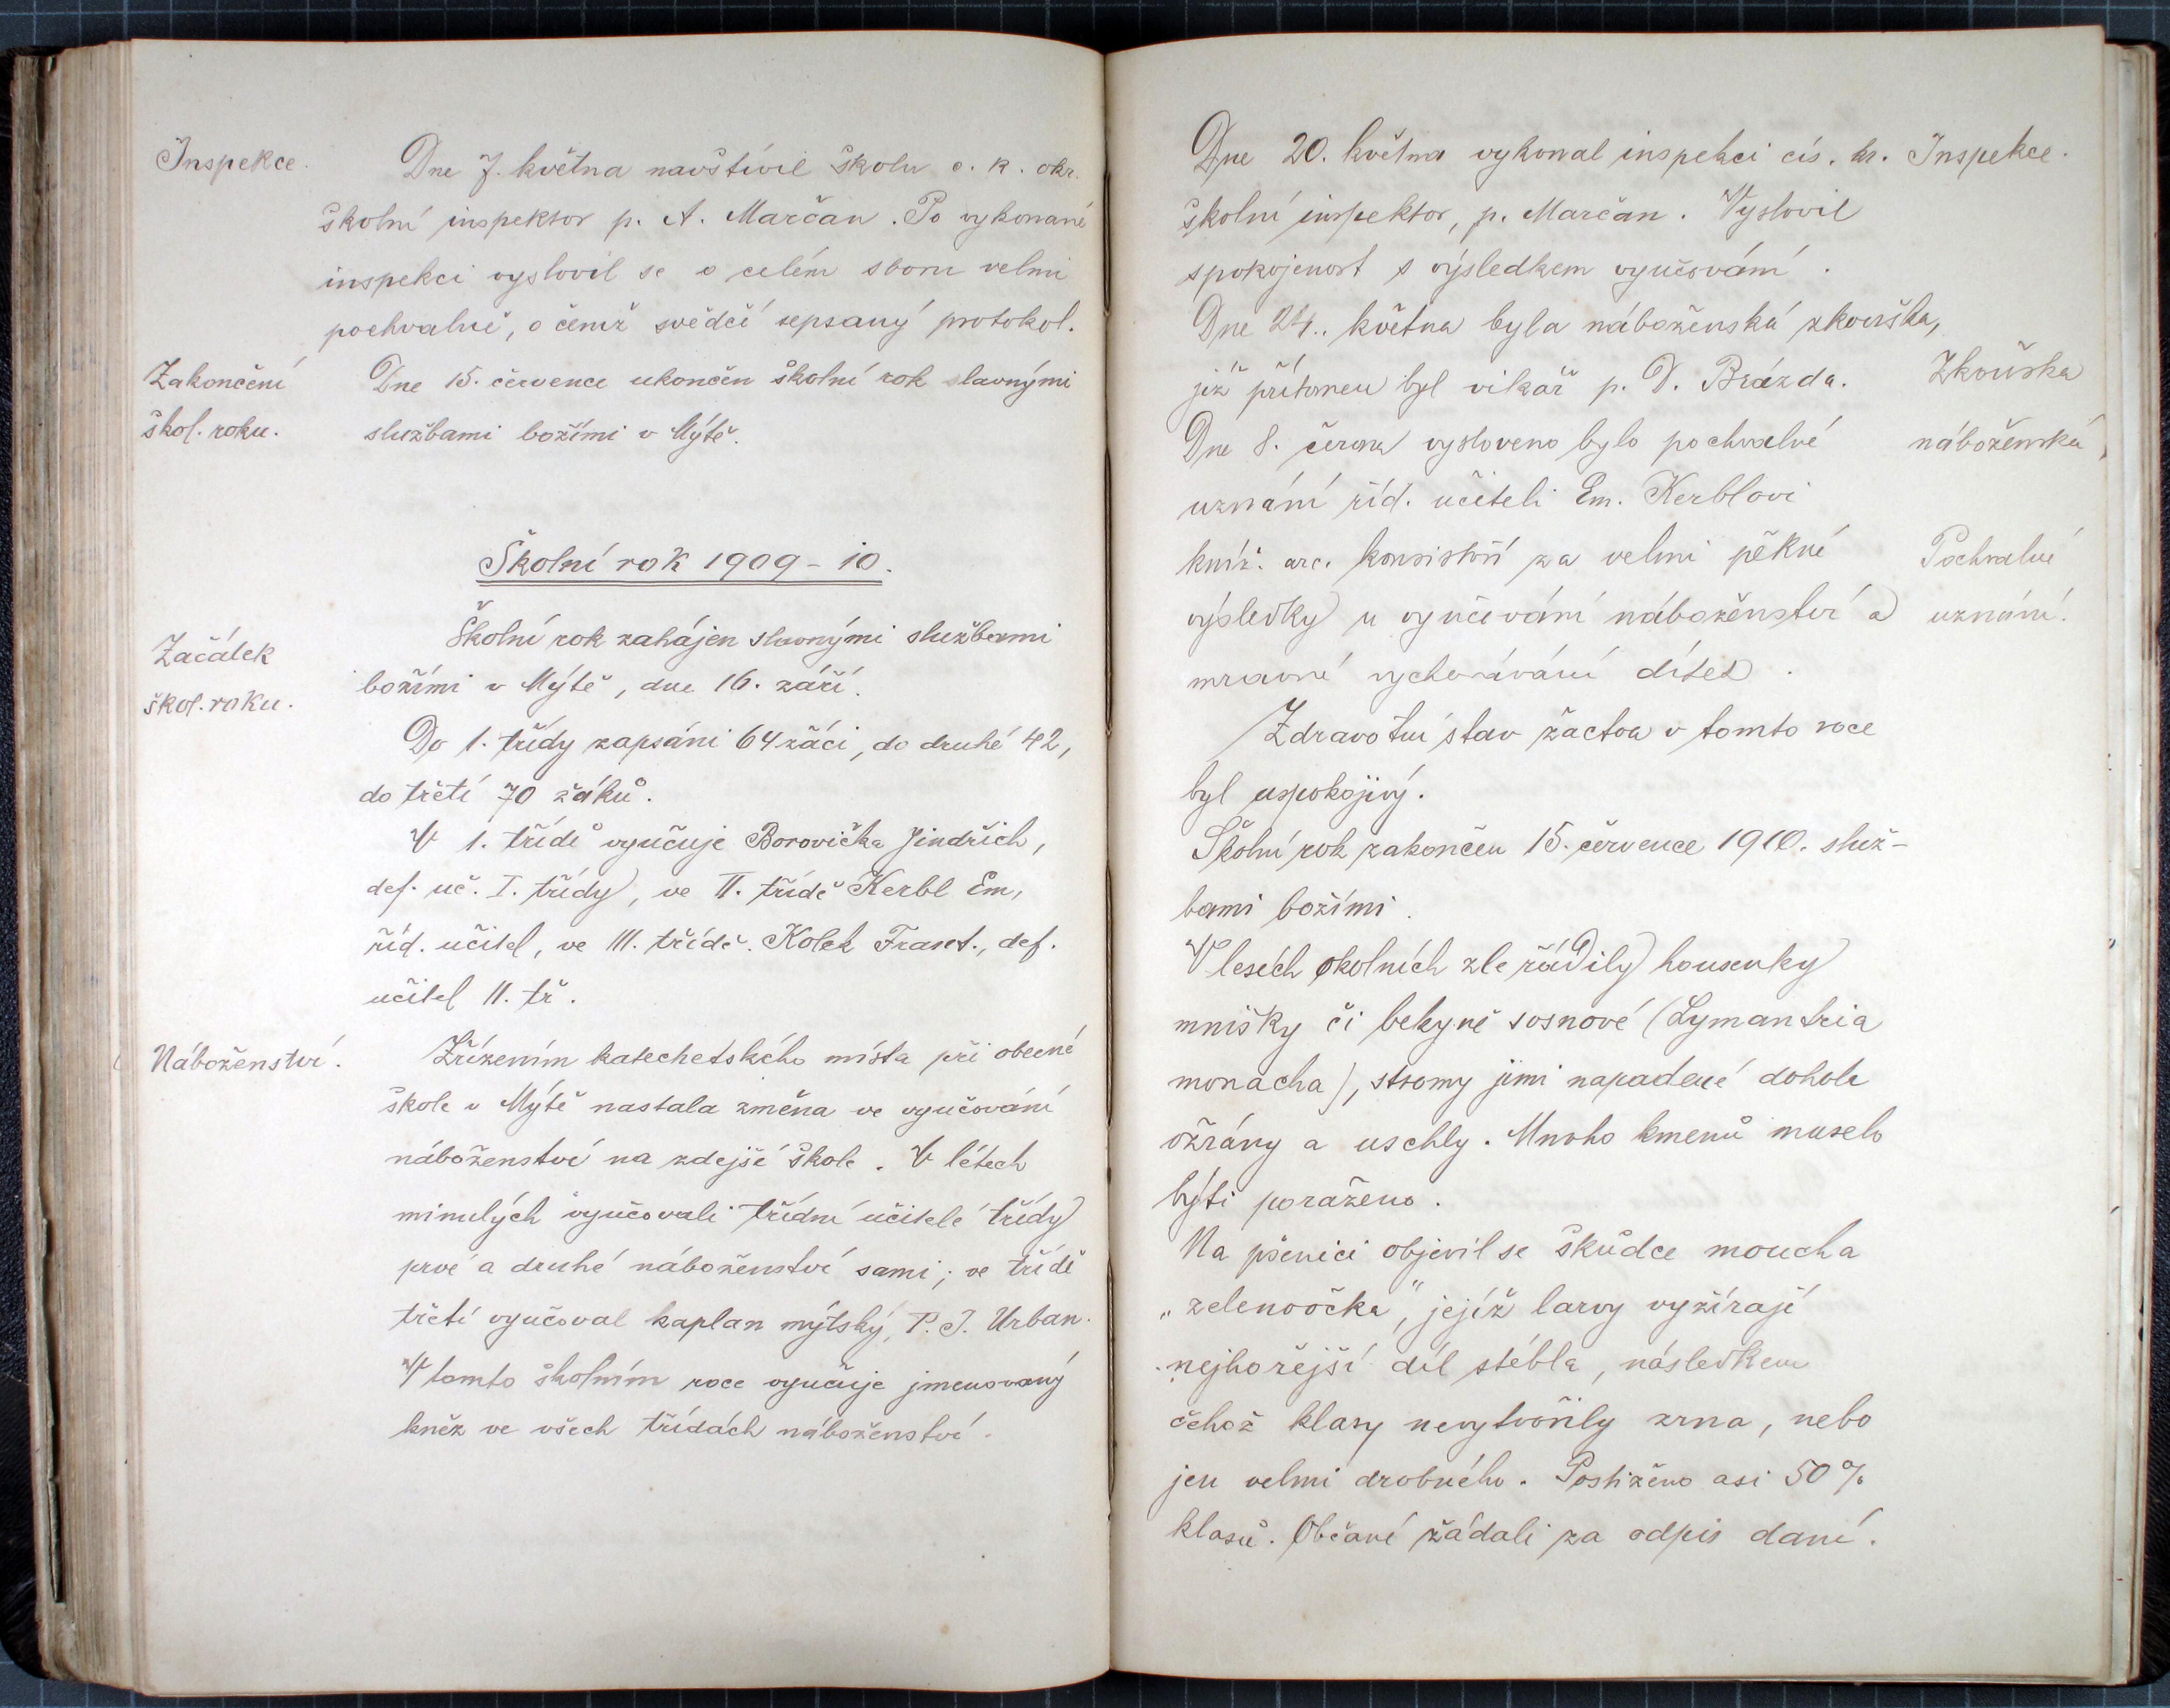 Inspekce.
Dne 7. května navštívil školu c. k. okr.
školní inspektor p. A. Marčan. Po vykonané
inspekci vyslovil se o celém sboru velmi
pochvalně, o čemž svědčí sepsaný protokol.
Zakončení
škol. roku.
Dne 15. července ukončen školní rok slavnými
službami božími v Mýtě.
Školní rok 1909 - 10.
Začátek
škol. roku.
Školní rok zahájen slavnými službami
božími v Mýtě, dne 16. září.
Do 1. třídy zapsáni 64 žáci, do druhé 42,
do třetí 70 žáků.
V 1. třídě vyučuje Borovička Jindřich,
def. uč. I. třídy, ve II. třídě Kerbl Em,
říd. učitel, ve III. třídě. Kolek Frant., def.
učitel II. tř.
Náboženství.
Zřízením katechetského místa při obecné
škole v Mýtě nastala změna ve vyučování
náboženství na zdejší škole. V létech
minulých vyučovali třídní učitelé třídy
prvé a druhé náboženství sami; ve třídě
třetí vyučoval kaplan mýtský, P. J. Urban.
V tomto školním roce vyučuje jmenovaný
kněz ve všech třídách náboženství.
Dne 20. května vykonal inspekci cís. kr.
Inspekce.
školní inspektor, p. Marčan. Vyslovil
spokojenost s výsledkem vyučování.
Dne 24. května byla náboženská zkouška,
jíž přítomen byl vikář p. V. Brázda.
Zkouška
náboženská
Dne 8. června vysloveno bylo pochvalné
uznání říd. učiteli Em. Kerblovi
kníž. arc. konsistoří za velmi pěkné
Pochvalné
uznání.
výsledky u vyučování náboženství a
mravné vychovávání dítek.
Zdravotní stav žactva v tomto roce
byl uspokojivý.
Školní rok zakončen 15. července 1910. služ-
bami božími.
V lesích okolních zle řádily housenky
mnišky či bekyně sosnové (Lymantria
monacha), stromy jimi napadené dohola
ožrány a uschly. Mnoho kmenů muselo
býti poraženo.
Na pšenici objevil se škůdce moucha
„zelenoočka", jejíž larvy vyžírají
nejhořejší díl stébla, následkem
čehož klasy nevytvořily zrna, nebo
jen velmi drobného. Postiženo asi 50%
klasů. Občané žádali za odpis daní.